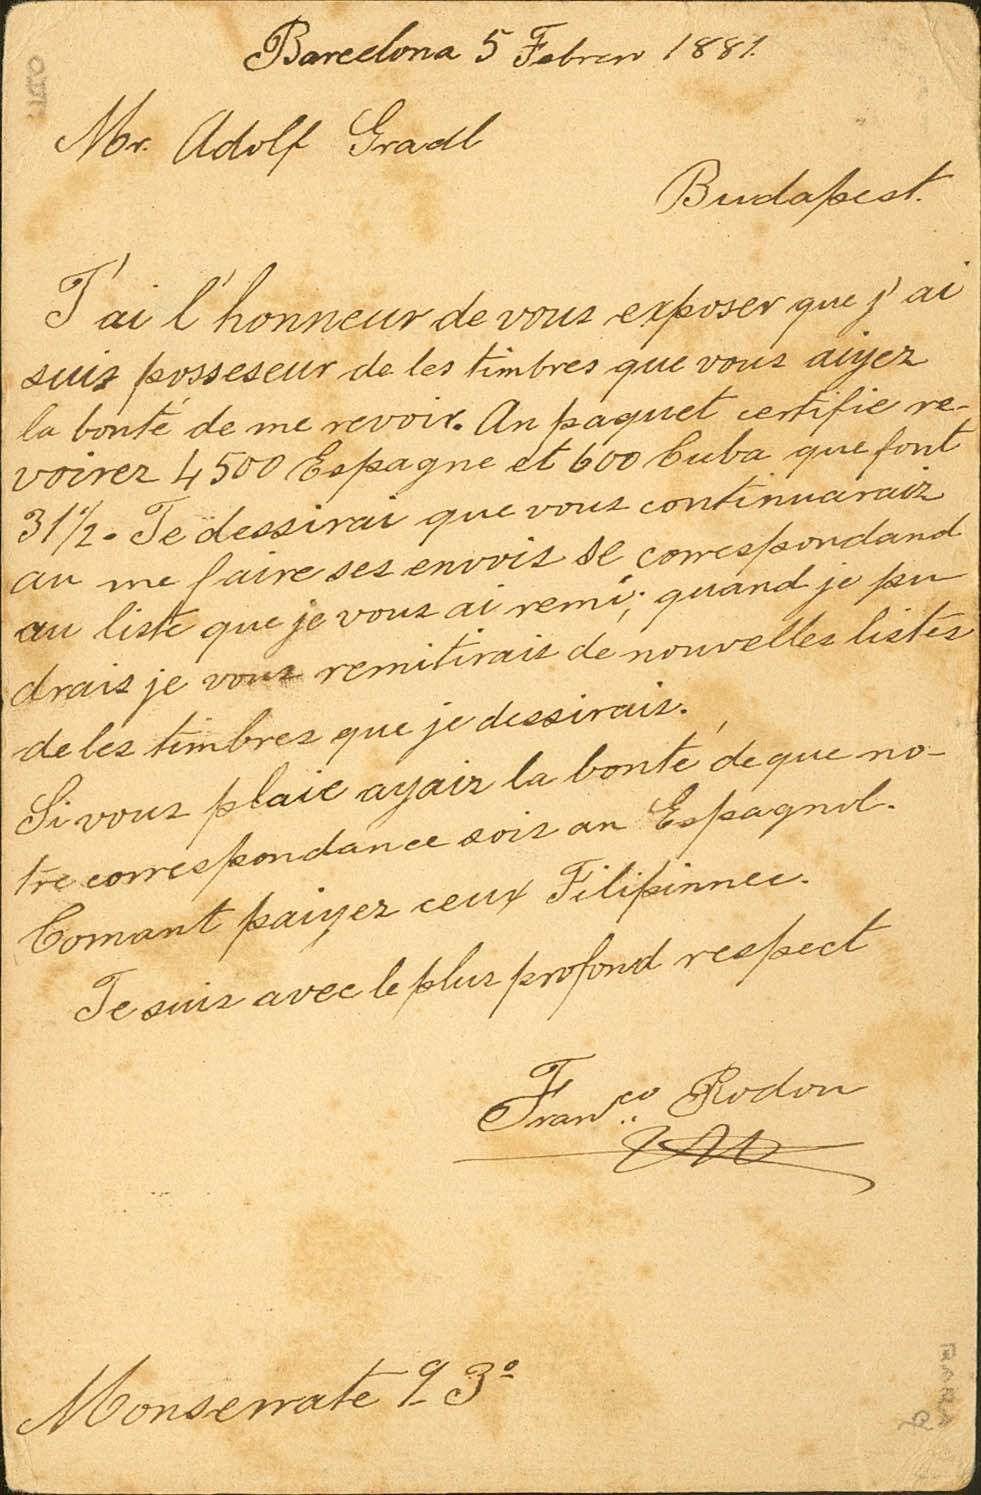 Barcelona 5 Febrero 1881.
Mr. Adolf Gradl
Budapest.
J'ai l'honneur de vous exposer que j'ai
suis posseseur de les timbres que vous aiyez
la bonté de me revoir. An paquet certifie re-
voirez 4500 Espagne et 600 Cuba que font
31 1/2. Je dessirai que vous continuaraiz
au me faire ses envois se correspondand
au liste que je vous ai remi; quand je pu
drais je vous remitirais de nouvelles listes
de les timbres que je dessirais.
Si vous plaic ayair la bonté de que no-
tre correspondance sois an Espagnol.
Comant paiyez ceux Filipinnec.
Je suis avec le plus profond respect
Franco Rodon
Monserrate 9 3º